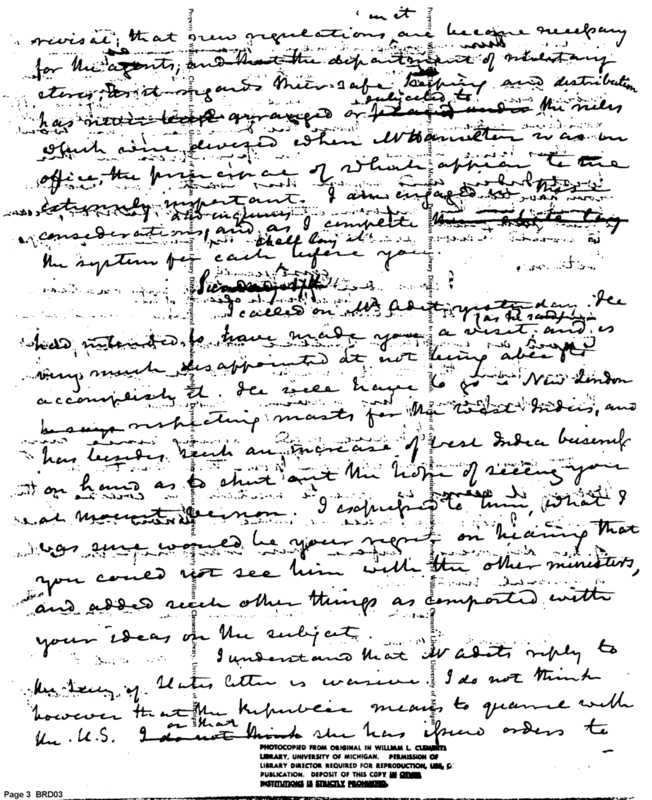 in it
revisal; that new regulations are become necessary
for the agents; and that the department of military
stores, as it regards their safe keeping and distribution
subjected to
has never been arranged or placed under the rules
which were devised when Mr Hamilton was in
office, the principal of which appear to be
extremely important. I am engaged in these
considerations, and as I complete
shall lay it
the system for each before you.
Sunday
I called on Mr Adet yesterday. He
had intended to have made you a visit, and is
very much disappointed at not being able to
accomplish it. He will have to go to New London
he says respecting masts for the West Indies, and
has besides such an increase of West India business
on hand as to shut out the hope of seeing you
at Mount Vernon. I expressed to him, what I
was sure would be your regret on hearing that
you could not see him with the other ministers,
and added such other things as comported with
your ideas on the subject.
I understand that Mr Adets reply to
the Secy of States letter is evasive. I do not think
however that the Republic means to quarrel with
or that
the U.S. I do not think she has issued orders to
PHOTOCOPIED FROM ORIGINAL IN WILLIAM L. CLEMENTS
LIBRARY, UNIVERSITY OF MICHIGAN. PERMISSION OF
LIBRARY DIRECTOR REQUIRED FOR REPRODUCTION, USE, O
PUBLICATION. DEPOSIT OF THIS COPY IN OTHER
INSTITUTIONS IS STRICTLY PROHIBITED.
Page 3 BRD03